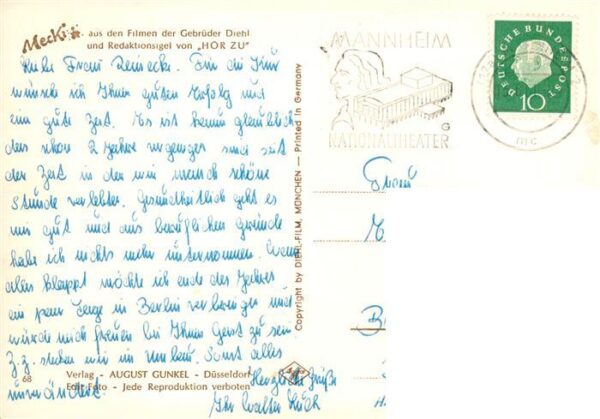 Mecki aus den Filmen der Gebrüder Diehl
und Redaktionsigel von „HÖR ZU"
Liebe Frau Reinecke. Für die Kur
wünsche ich Ihnen guten Erfolg und
eine gute Zeit. Es ist kaum glaublich
das schon 2 Jahre vergangen sind seit
der Zeit in der wir manch schöne
Stunde verlebten. Gesundheitlich geht es
uns gut und aus beruflichen Gründe
habe ich nichts mehr unternommen. Wenn
alles klappt möchte ich ende des Jahres
ein paar Tage in Berlin verbringen und
würde mich freuen bei Ihnen Gast zu sein
Z.z. stecken wir im Umbau. Sonst alles
unverändert.
Herzliche Grüße
Ihr Walter
68
Verlag - AUGUST GUNKEL - Düsseldorf
Edit-Foto - Jede Reproduktion verboten
Copyright by DIEHL-FILM, MÜNCHEN — Printed in Germany
MANNHEIM
NATIONALTHEATER
G
DEUTSCHE BUNDESPOST
10
Frau